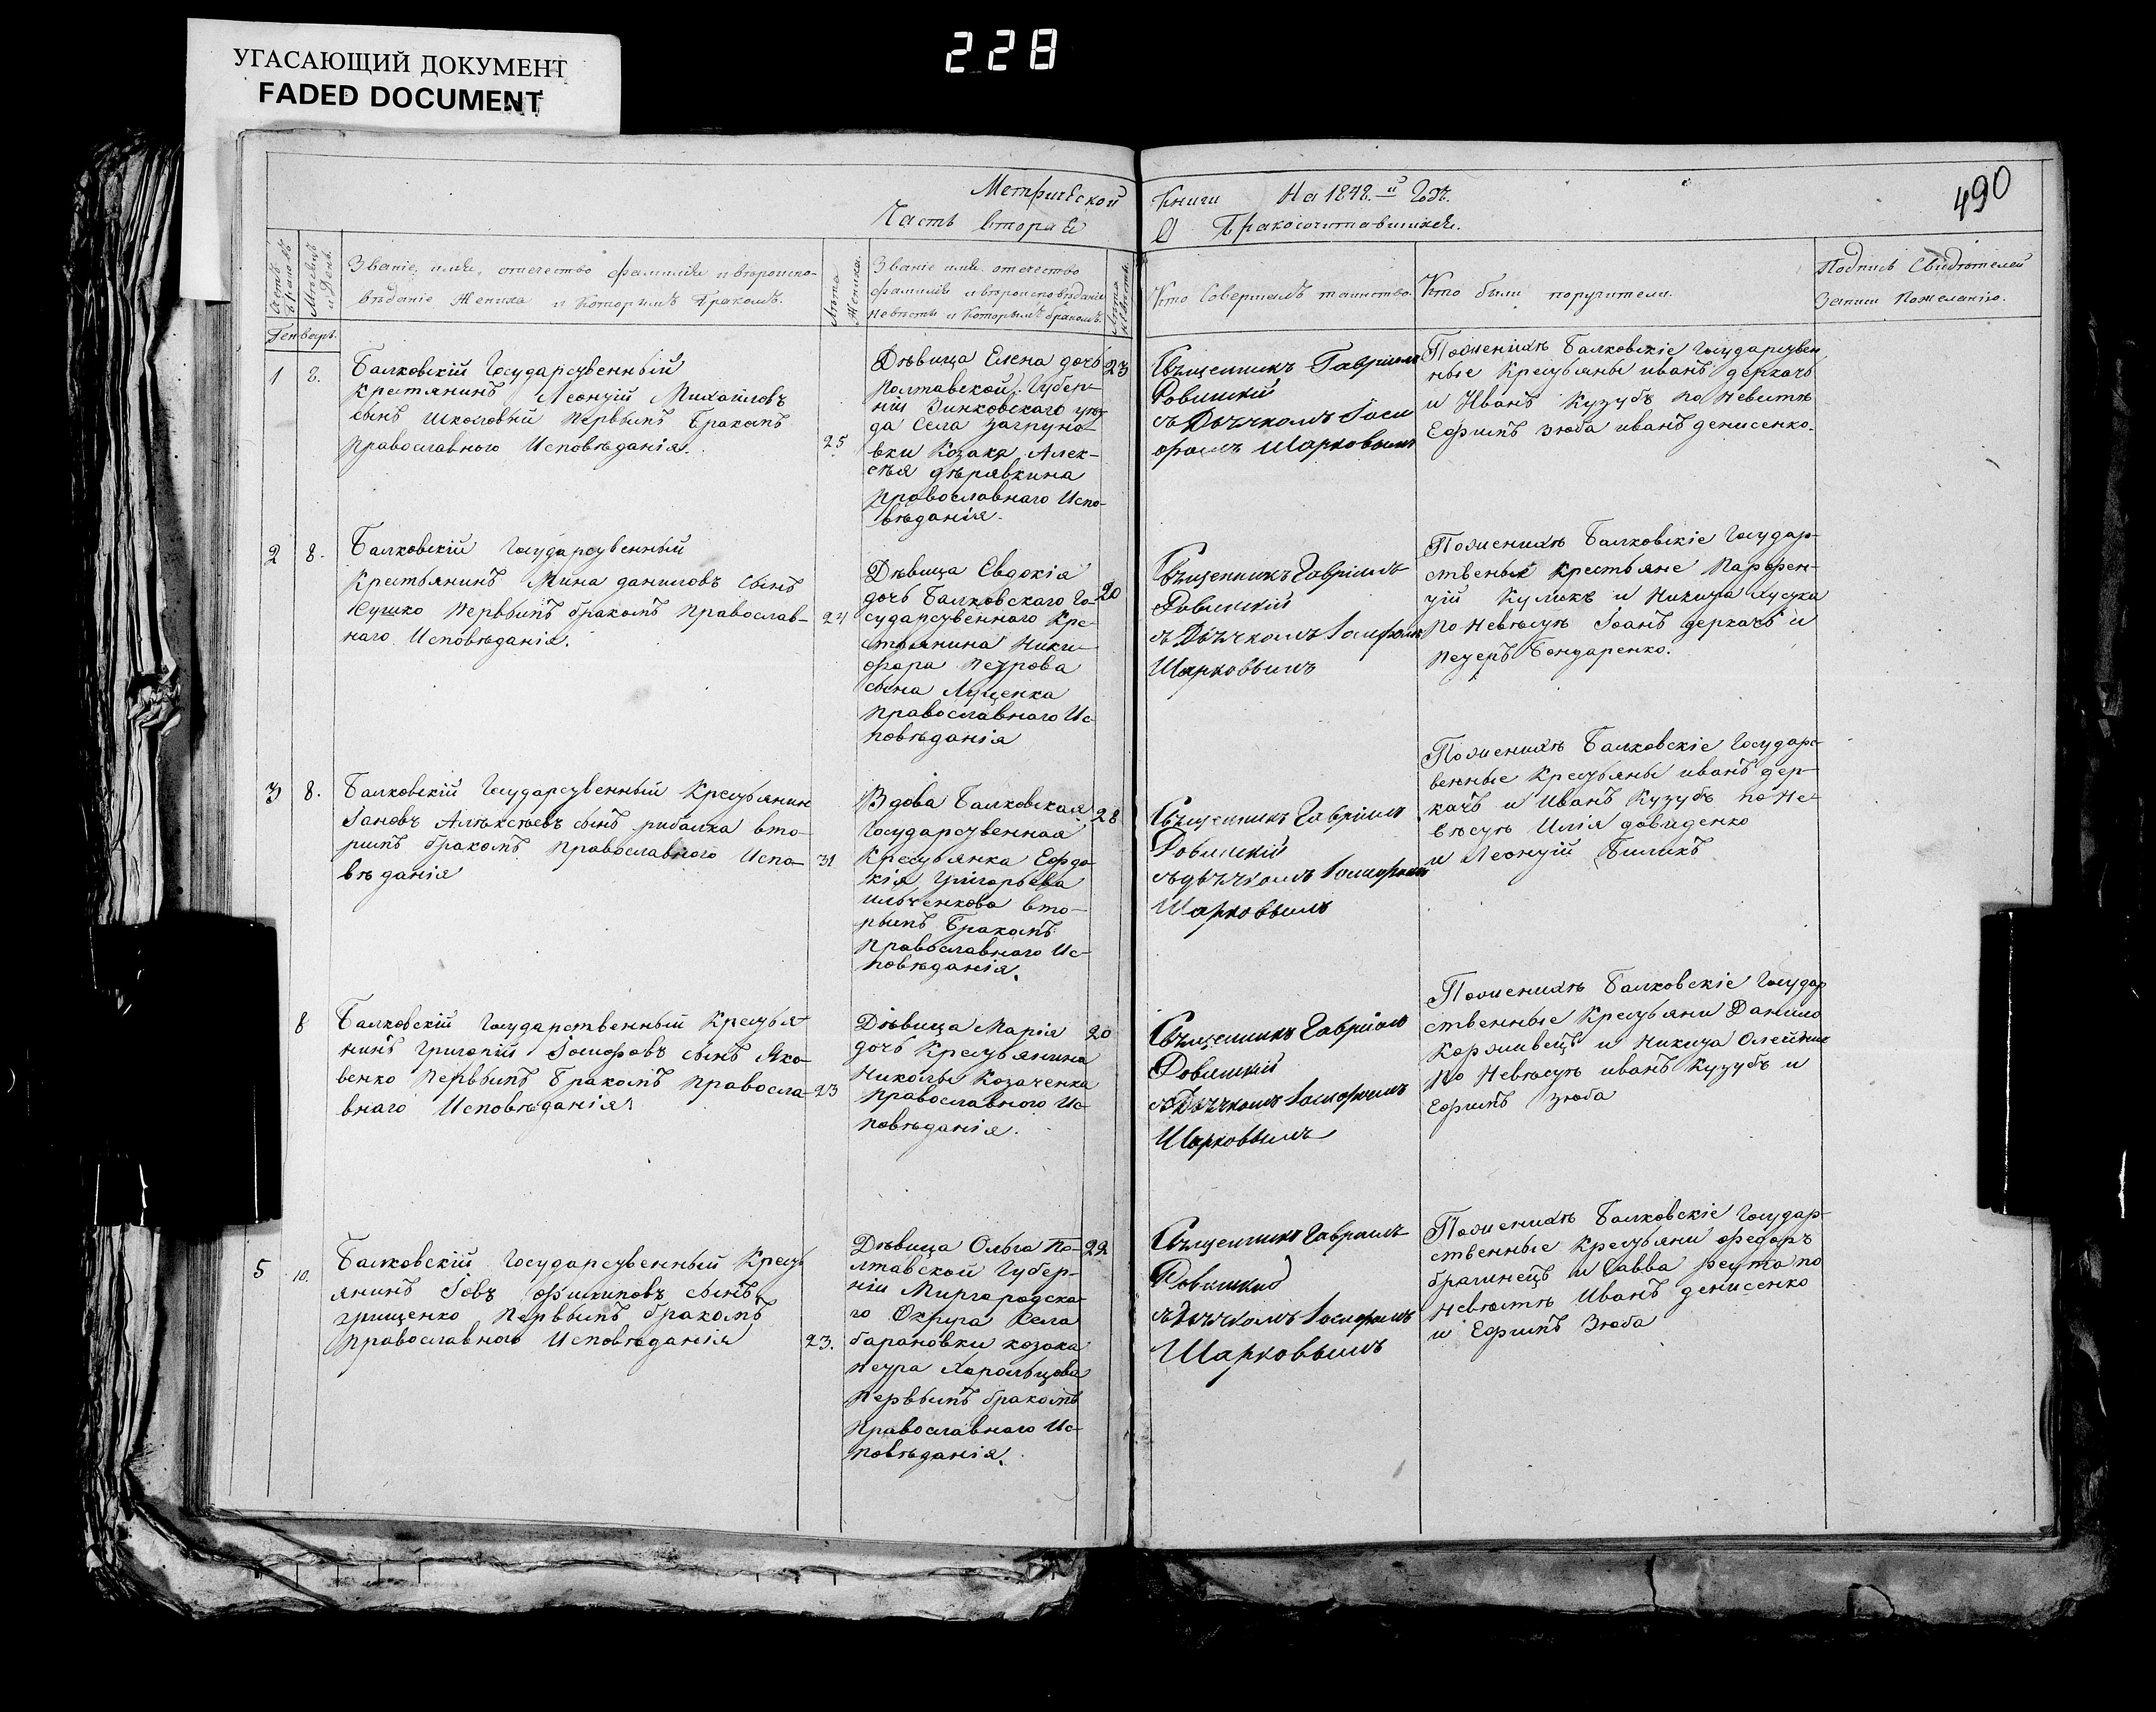 228
УГАСАЮЩИЙ ДОКУМЕНТ
FADED DOCUMENT
490
Метрической Книги На 1848.й Годъ.
Часть вторая О Бракосочитавшихся.
Счетъ браковъ
Мѣсяцъ и День.
Званіе, имя, отечество фамилія и вѣроиспо-
вѣданіе Жениха и Которымъ Бракомъ.
Лѣта Жениха.
Званіе имя отечество
фамилія и вѣроисповѣданіе
невѣсты и Которымъ бракомъ.
Лѣта Невѣсты.
Кто Совершалъ таинство.
Кто были поручители.
Подпись Свидѣтелей
Записи Пожеланію.
Генварь.
1
8.
Балковскій Государственный
крестянинъ Леонтій Михайловъ
сынъ Шкоговый Первымъ Бракомъ
Православного Исповѣданія.
25
Дѣвица Елена дочь
Полтавской Губер-
ніи Зинковского уез-
да Села Загруно-
вки Козака Алек-
сѣя дѣрявкина
Православнаго Испо-
вѣданія.
23
Священникъ Гавріилъ
Ровинскій
съ Дьячкомъ Іоси
фомъ Шарковымъ
По женихѣ Балковскіе Государствен
ные Крестьяны иванъ деркачь
и Иванъ Кузубъ по Невестѣ
Ефимъ зюба иванъ денисенко.
2
8.
Балковскій Государственный
Крестьянинъ Мина даниловъ Сынъ
Кушко Первымъ бракомъ Православ-
наго Исповѣданія.
24
Дѣвица Евдокія
дочь Балковскаго Го-
сударственного Кре-
стьянина Ники-
фора Петрова
сына Луценка
Православнаго Ис-
повѣданія
20
Священникъ Гавріилъ
Ровинскій
съ Дьячкомъ Іосифомъ
Шарковымъ
По женихѣ Балковскіе Государ-
ственые Крестьяне Парфен-
тій Куликъ и Никита луска
По Невѣстѣ Іоанъ деркачь и
Петеръ Бондаренко.
3
8.
Балковскій Государственный Крестьянин
Іановъ Алѣксѣевъ сынъ рибалка вто-
римъ бракомъ Православного Испо-
вѣданія
31
Вдова Балковская
Государственная
Крестьянка Ефдо-
кія Григорьева
ильченкова вто-
рымъ Бракомъ
Православнаго Ис-
повѣданія.
28
Священникъ Гавріил
Ровинскій
съ дьячкомъ Іосифомъ
Шарковымъ
По женихѣ Балковскіе Государс-
венные Крестьяны иванъ дер-
качь и Иванъ Кузубъ по Не-
вѣстѣ Илія довиденко
и Леонтій Биликъ
8
Балковскій Государственный Крестья
нинъ Григорій Іосифовъ сынъ Яко-
венко Первымъ Бракомъ Правосла-
внаго Исповѣданія
23
Дѣвица Марія
дочь Крестьянина
Николы Козаченка
Православного Ис-
повѣданія.
20
Священникъ Гавріилъ
Ровинскій
съ Дьячкомъ Іосифомъ
Шарковымъ
По женихѣ Балковскіе Государ
ственные Крестьяни Данило
Корживецъ и Никита Олейник
По Невѣстѣ иванъ Кузубъ и
Ефимъ зюба
5
10.
Балковскій Государственный Кресть
янинъ Іовъ Филиповъ Сынъ
грищенко Первымъ бракомъ
Православного Исповѣданія
23.
Дѣвица Ольга По-
лтавской Губер-
ніи Миргородска-
го Округа Села
барановки козака
Петра Харольцова
Первымъ бракомъ
Православнаго Ис-
повѣданія.
22
Священникъ Гавріилъ
Ровинский
съ Дьячкомъ Іосифомъ
Шарковымъ
По женихѣ Балковскіе Государ-
ственные Крестьяни федоръ
брагинецъ и Савва реута по
Невѣстѣ Иванъ денисенко
и Ефимъ Зюба